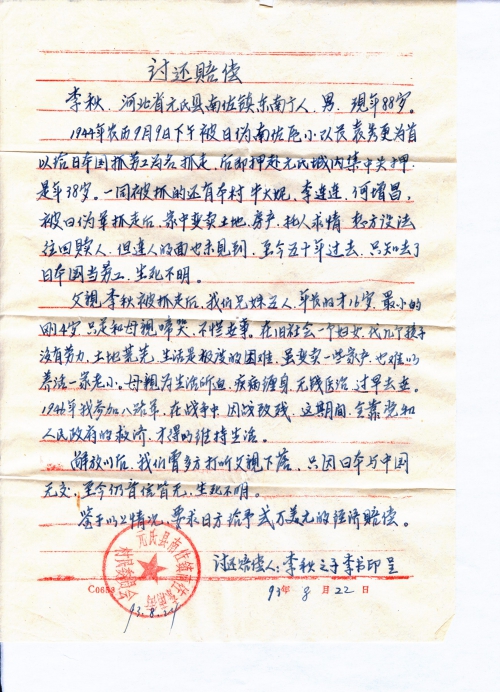 讨还赔偿
李秋，河北省元氏县南佐镇东南于人，男，现年88岁。
1944年农历9月9日下午被日伪南佐厄小队长袁秀更为首
以给日本国抓劳工为名抓走，后即押赴元氏城内集中关押，
是年38岁。一同被抓的还有本村牛大妮，李连连，何增昌，
被日伪军抓走后，家中变卖土地，房产，托人求情，想方设法
往回赎人，但连人的面也未见到，至今五十年过去，只知去了
日本国当劳工，生死不明。
父亲李秋被抓走后，我们兄妹五人，年长的才16岁，最小的
刚4岁，只是和母亲啼哭，不懂世事。在旧社会一个妇女，代几个孩子
没有劳力，土地荒芜，生活是极度的困难，虽变卖一些家产，也难以
养活一家老小。母亲为生活所迫，疾病缠身，无钱医治，过早去世。
1946年我参加八路军，在战争中，因战致残，这期间，全靠党和
人民政府的救济，才得以维持生活。
解放以后，我们曾多方打听父亲下落，只因日本与中国
无交，至今仍音信皆无，生死不明。
鉴于以上情况，要求日方给予贰万美元的经济赔偿。
讨还赔偿人：李秋之子李书印呈
93年8月22日
元氏县南佐镇南佐
村民委员会
C0658
93.8.24